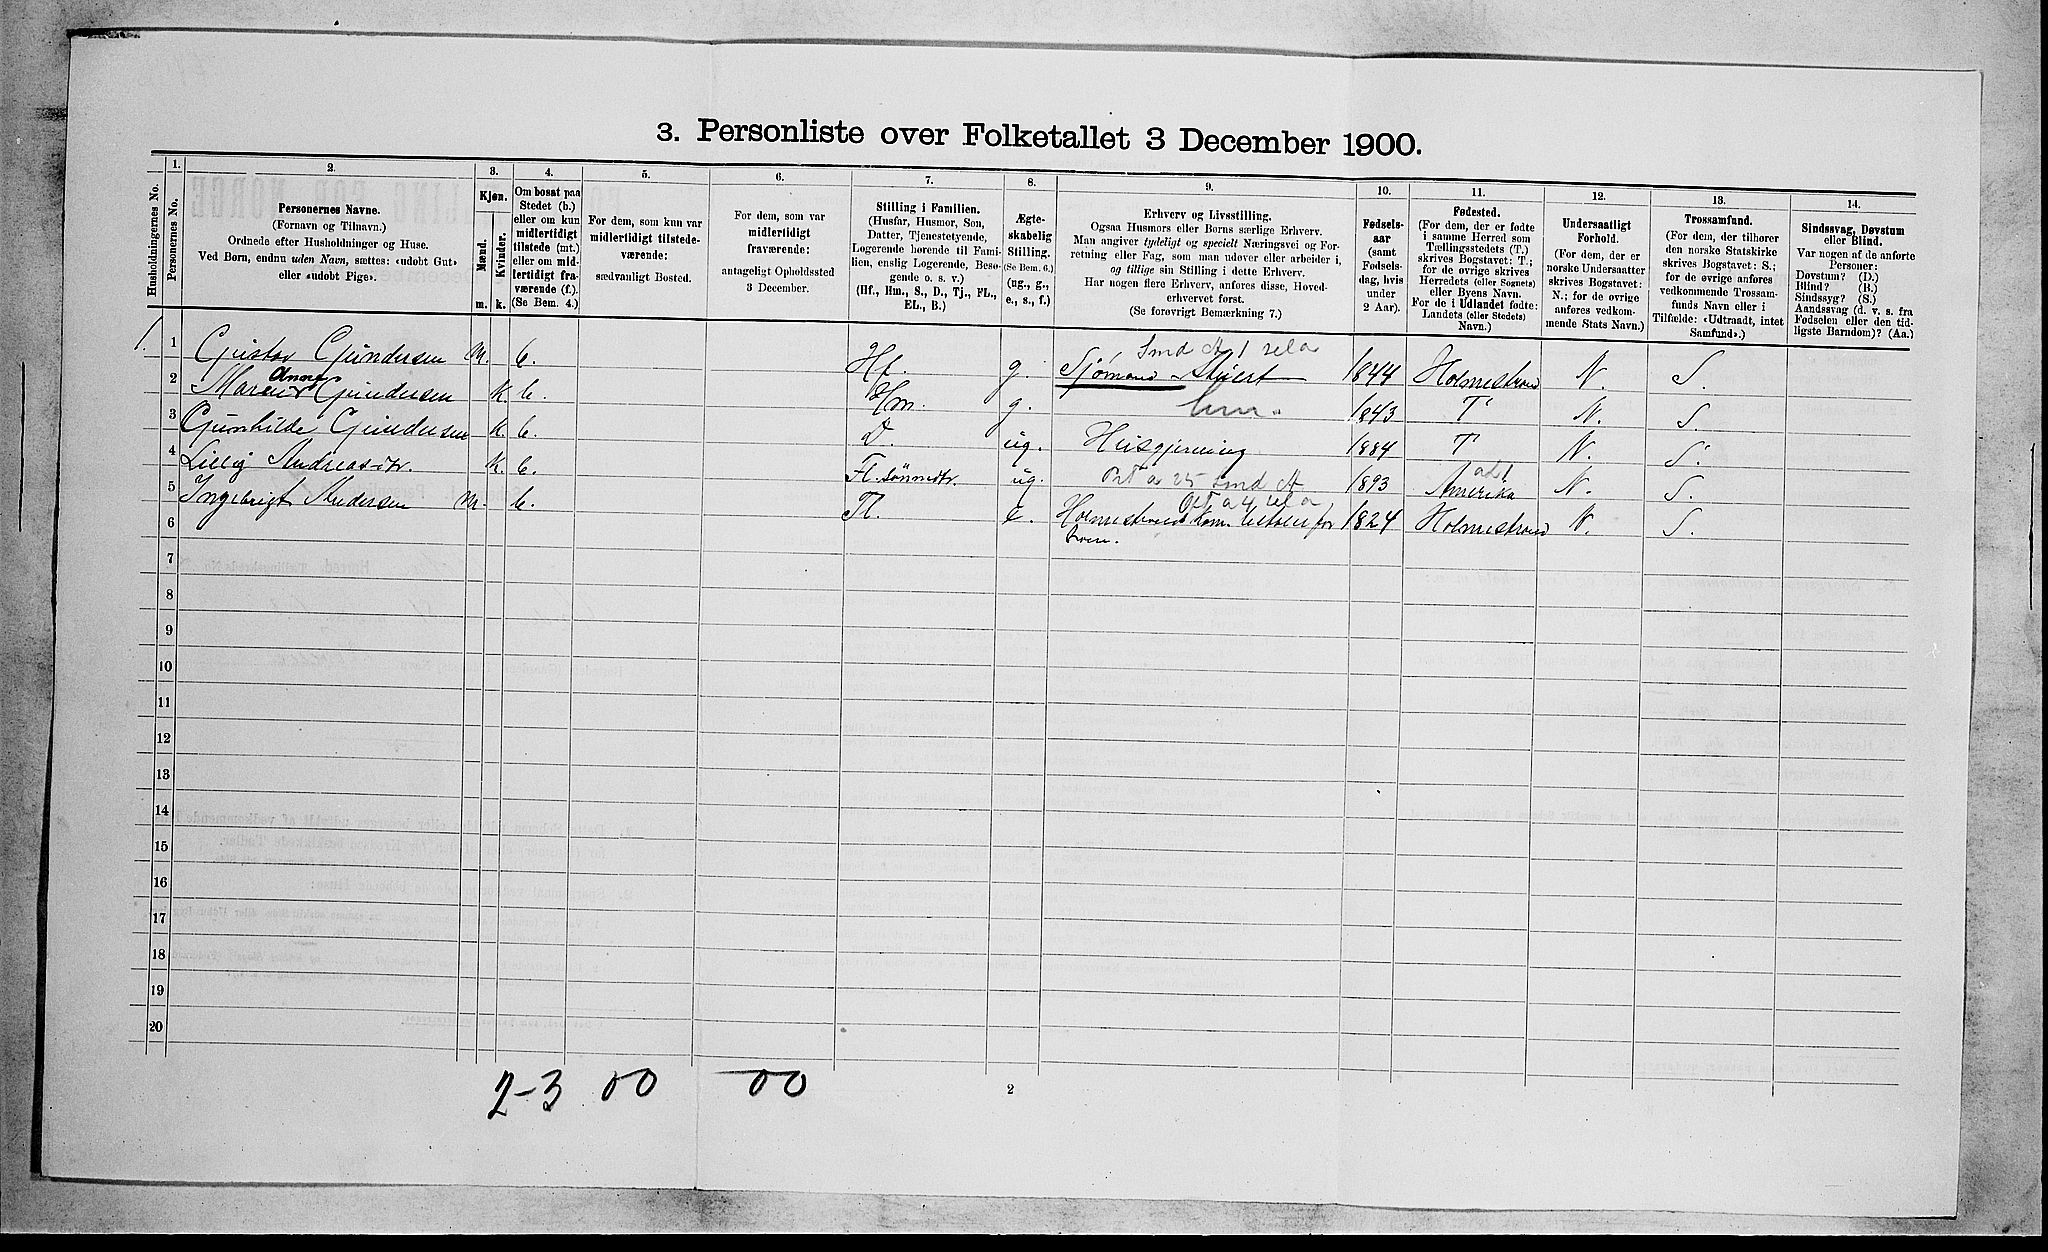 3. Personliste over Folketallet 3 December 1900.
Husholdningernes No.
1.
Personernes No.
2.
Personernes Navne.
(Fornavn og Tilnavn.)
Ordnede efter Husholdninger og Huse.
Ved Børn, endnu uden Navn, sættes: «udobt Gut»
eller «udobt Pige».
3.
Kjøn.
Mænd.
Kvinder.
m.
k.
4.
Om bosat paa
Stedet (b.)
eller om kun
midlertidigt
tilstede (mt.)
eller om mid-
lertidigt fra-
værende (f.).
(Se Bem. 4.)
5.
For dem, som kun var
midlertidigt tilstede-
værende:
sædvanligt Bosted.
6.
For dem, som var
midlertidigt
fraværende:
antageligt Opholdssted
3 December.
7.
Stilling i Familien.
(Husfar, Husmor, Søn,
Datter, Tjenestetyende,
Logerende hørende til Fami-
lien, enslig Logerende, Besø-
gende o. s. v.)
(Hf., Hm., S., D., Tj., FL.,
EL., B.)
8.
Ægte-
skabelig
Stilling.
(Se Bem. 6.)
(ug., g.,
e., s., f.)
9.
Erhverv og Livsstilling.
Ogsaa Husmors eller Børns særlige Erhverv.
Man angiver tydeligt og specielt Næringsvei og For-
retning eller Fag, som man udøver eller arbeider i,
og tillige sin Stilling i dette Erhverv.
Har nogen flere Erhverv, anføres disse, Hoved-
erhvervet først.
(Se forøvrigt Bemærkning 7.)
10.
Fødsels-
aar
(samt
Fødsels-
dag, hvis
under
2 Aar).
11.
Fødested.
(For dem, der er fødte
i samme Herred som
Tællingsstedets (T.)
skrives Bogstavet: T.;
for de øvrige skrives
Herredets (eller Sognets)
eller Byens Navn.
For de i Udlandet fødte:
Landets (eller Stedets)
Navn.)
12.
Undersaatligt
Forhold.
(For dem, der er
norske Undersaatter
skrives Bogstavet:
N.; for de øvrige
anføres vedkom-
mende Stats Navn.)
13.
Trossamfund.
(For dem, der tilhører
den norske Statskirke
skrives Bogstavet: S.;
for de øvrige anføres
vedkommende Trossam-
funds Navn eller i
Tilfælde: «Udtraadt, intet
Samfund».)
14.
Sindssvag, Døvstum
eller Blind.
Var nogen af de anførte
Personer:
Døvstum? (D.)
Blind? (B.)
Sindssyg? (S.)
Aandssvag (d. v. s. fra
Fødselen eller den tid-
ligste Barndom)? (Aa.)
1. 1 Gustav Gundersen m. b. Hf. g. Sjømand 1844 Holmestrand N. S.
2 Anne Gundersen k. b. Hm. g. hm. 1843 T N. S.
3 Gunhilde Gundersen k. b. D. ug. Husgjerning 1884 T N. S.
4 Lilly Andreasdtr. k. b. Fl. sønnedtr. ug. 1893 Amerika N. S.
5 Ingebrigt Andersen m. b. Fl. e. 1824 Holmestrand N. S.
6
7
8
9
10
11
12
13
14
15
16
17
18
19
20
2-3 00 00
2